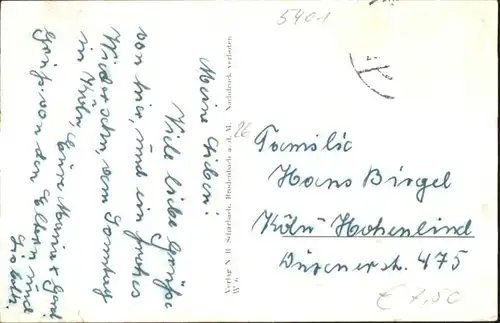 5401
Meine Lieben!
Viele liebe Grüße
von hier und ein frohes
Wiedersehn, am Sonntag
in Köln, Eure Maria +
Grüße von den Eltern und
Verlag N. H. Scharbach, Brodenbach a. d. M. Nachdruck verboten
W 6
26
Familie
Hans Birgel
Köln-Hohenlind
Dürenerstr. 475
€ 7,50